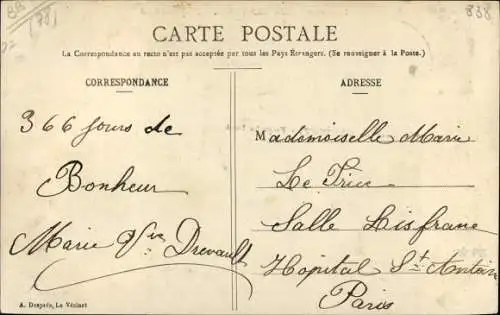 (78)
838
CARTE POSTALE
La Correspondance au recto n'est pas acceptée par tous les Pays Étrangers. (Se renseigner à la Poste.)
CORRESPONDANCE
366 jours de
Bonheur
Marie Drevault
A. Després, Le Vésinet
ADRESSE
Mademoiselle Marie
Le
Salle Lisfranc
Hopital St Antoin
Paris